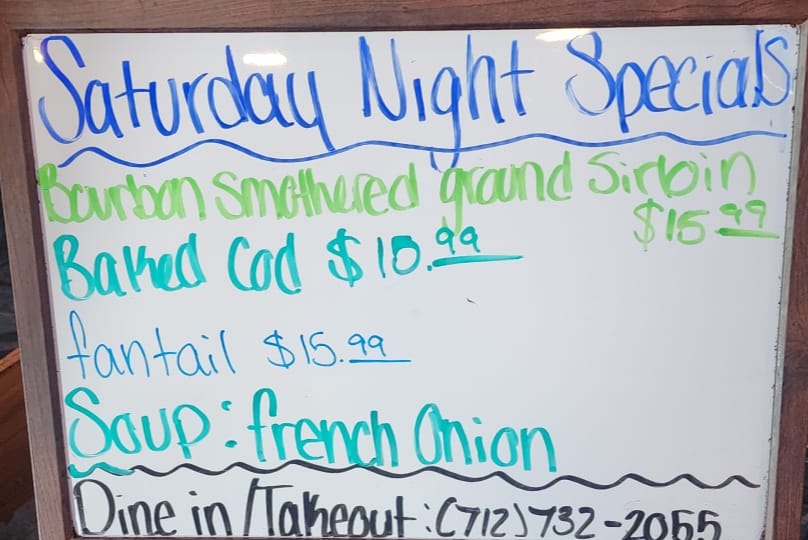 Saturday Night Specials
Bourbon Smothered ground Sirloin
$15.99
Baked Cod $15.99
fantail $15.99
Soup: french Onion
Dine in/Takeout: (712)732-2055